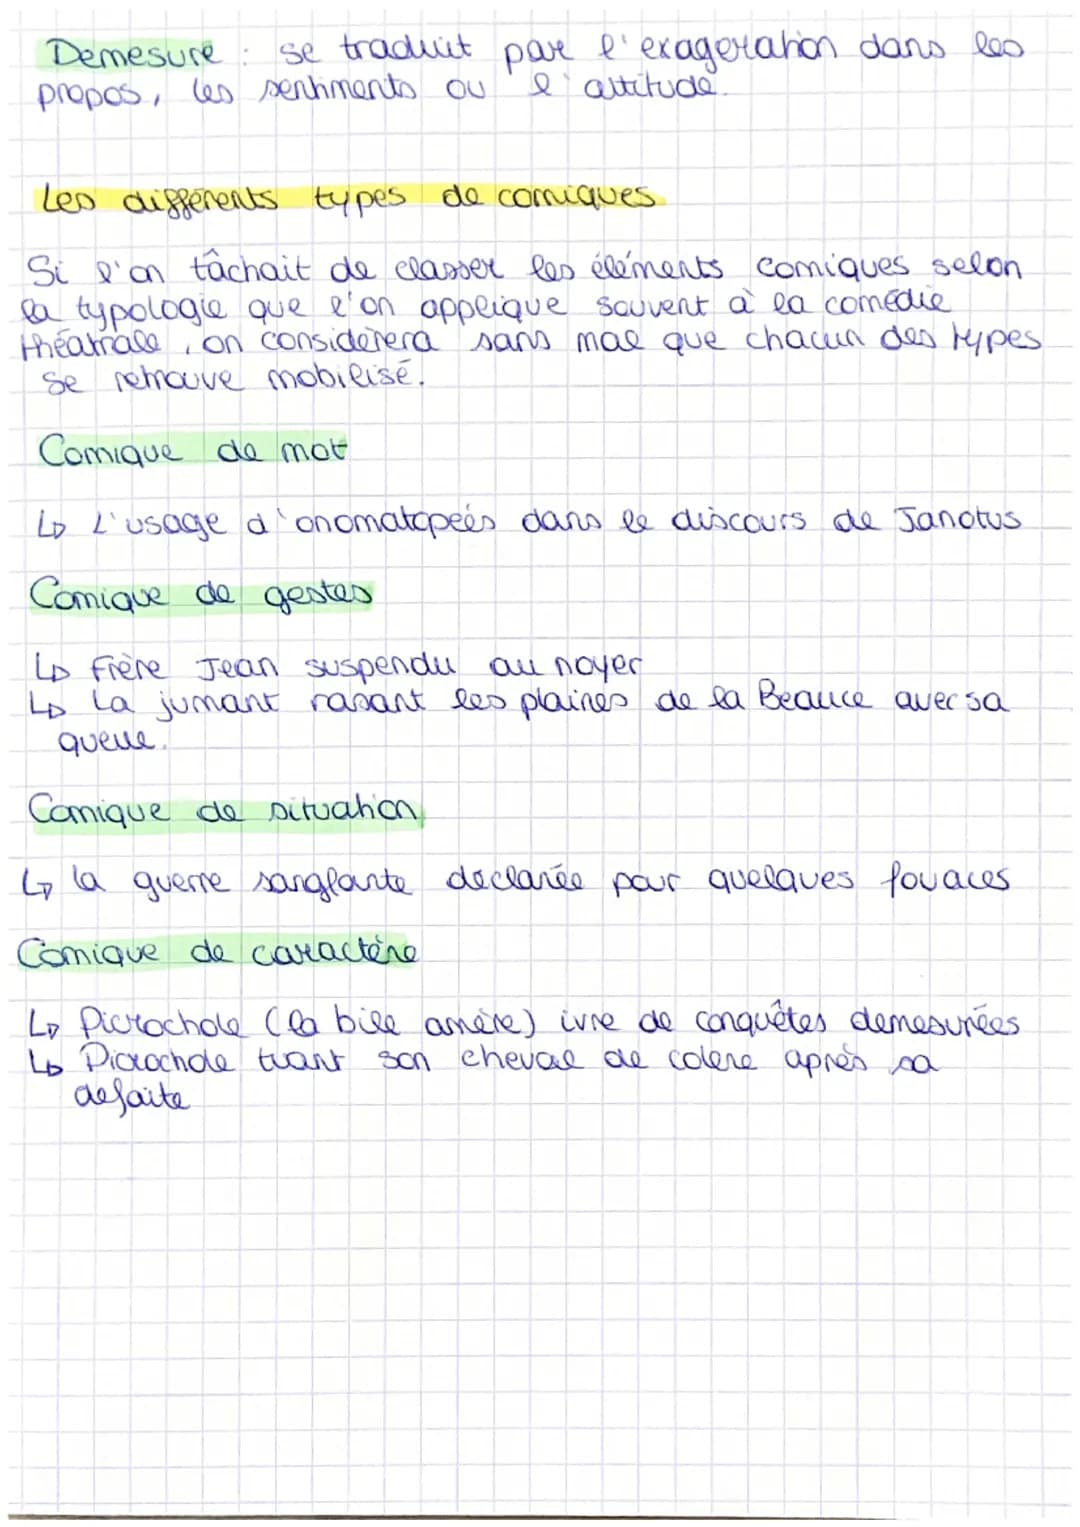 Demesure : se traduit par l'exageration dans les
propos, les sentiments ou l'attitude.
Les différents types de comiques
Si l'on tâchait de classer les éléments comiques selon
la typologie que l'on applique souvent à la comédie
théatrale, on considèrera sans mal que chacun des types
se retrouve mobilisé.
Comique de mot
↳ L'usage d'onomatopeés dans le discours de Janotus
Comique de gestes
↳ Frère Jean suspendu au noyer
↳ La jumant rasant les plaines de la Beauce avec sa
queue.
Comique de situation
↳ la guerre sanglante declarée pour quelques fouaces
Comique de caractère
↳ Picrochole (la bile amère) ivre de conquêtes demesurées
↳ Picrochole tuant son cheval de colere après sa
defaite